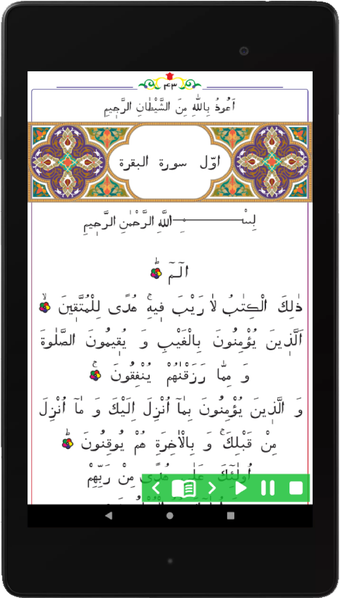 ۴۳
اَعُوذُ بِاللّٰهِ مِنَ الشَّيْطٰانِ الرَّجٖيمِ
اوّل سورة البقرة
بِسْمِ اللّٰهِ الرَّحْمٰنِ الرَّحٖيمِ
الٓمٓ
ذٰلِكَ الْكِتٰبُ لٰا رَيْبَ فٖيهِۚ هُدًى لِلْمُتَّقٖينَ
اَلَّذٖينَ يُؤْمِنُونَ بِالْغَيْبِ وَ يُقٖيمُونَ الصَّلٰوةَ
وَ مِمّٰا رَزَقْنٰهُمْ يُنْفِقُونَ
وَ الَّذٖينَ يُؤْمِنُونَ بِمٰآ اُنْزِلَ اِلَيْكَ وَ مٰآ اُنْزِلَ
مِنْ قَبْلِكَۚ وَ بِالْاٰخِرَةِ هُمْ يُوقِنُونَ
اُولٰٓئِكَ عَلٰى هُدًى مِنْ رَبِّهِمْ